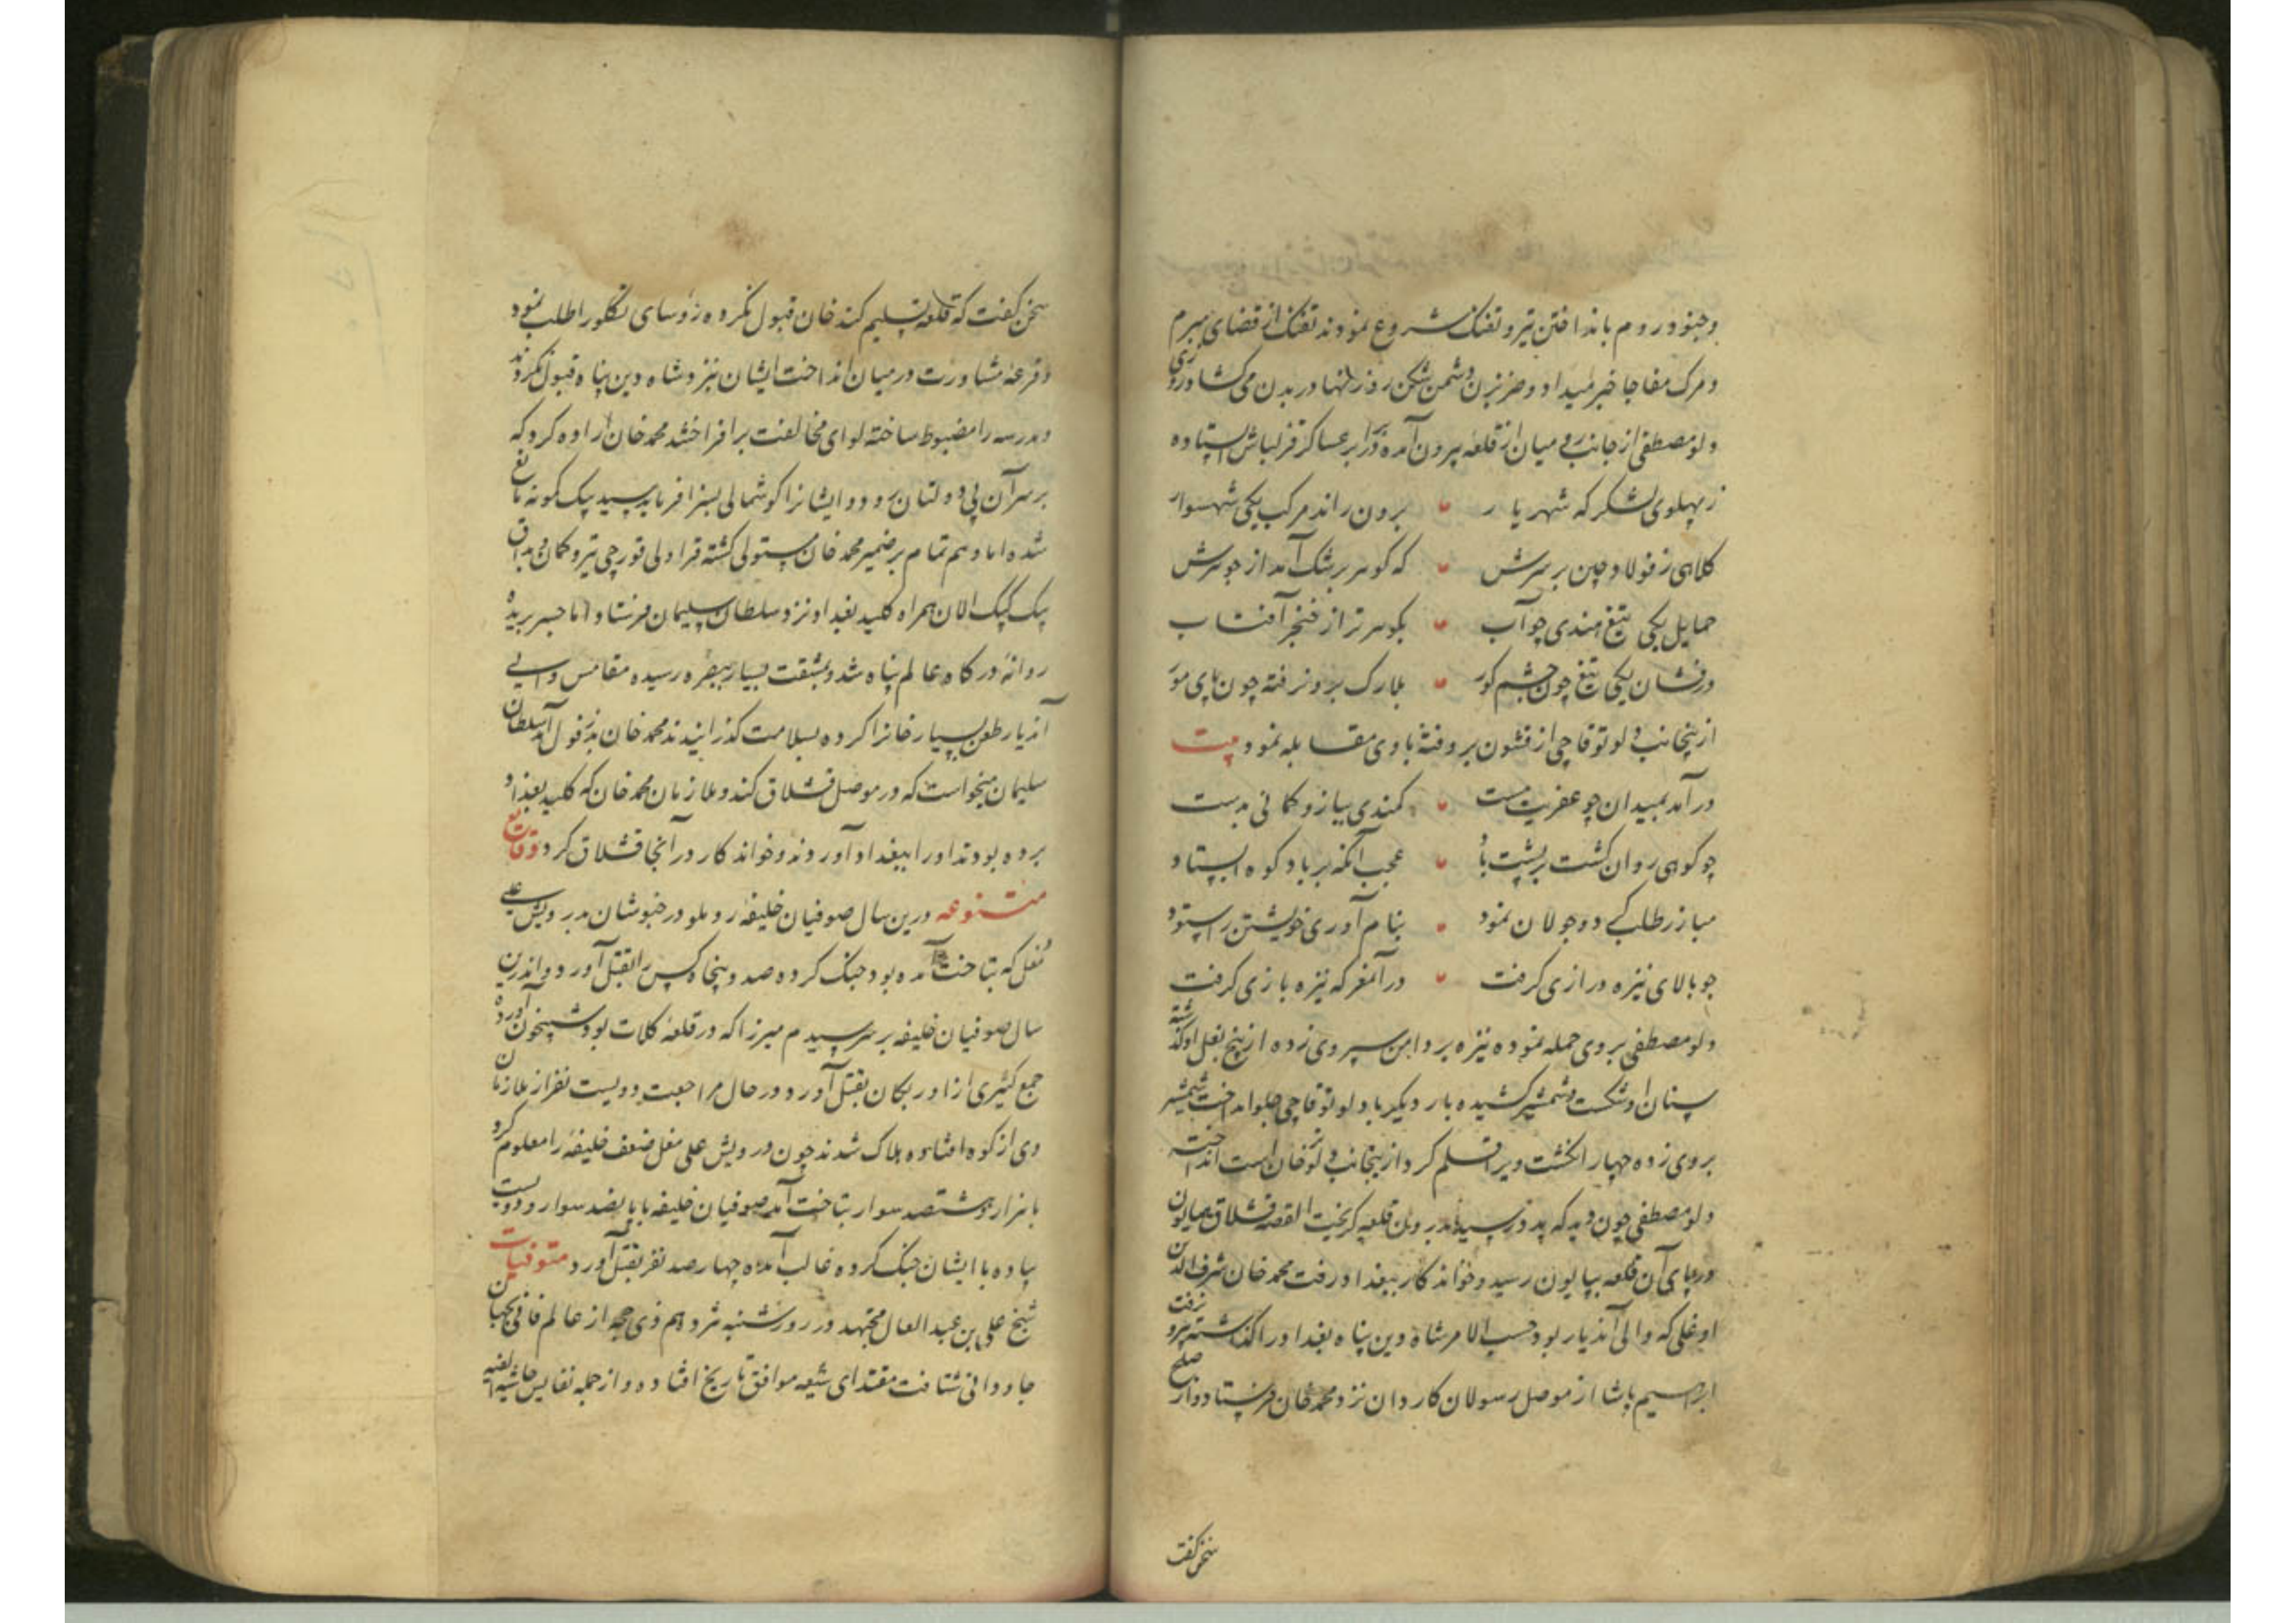 وجنود روم بانداختن تیر و تفنک شروع نمودند تفنک از قضای مبرم
و مرک مفاجا خبر میداد و ضربزن دشمن شکن روزنها در بدن می کشاد درزی
ولو مصطفی از جانب میان از قلعه بیرون آمده در برابر عساکر قزلباش ایستاده
ز پهلوی لشکر که شهریار برون راند مرکب یکی شهسوار
کلاهی ز فولاد چین بر سرش که کوهر برشک آمد از جوهرش
حمایل یکی تیغ هندی چو آب بکوهر تر از خنجر آفتاب
درفشان یکی تیغ چون چشم کور بلارک برو نرفته چون پای مور
ازینجانب دلو توقاچی از قشون بر رفته با وی مقابله نمود بیت
درآمد بمیدان چو عفریت مست کمندی ببازو کمانی بدست
چو کوهی روان کشت بر پشت باد عجب آنکه بر باد کوه ایستاد
مبارز طلب کرد و جولان نمود بنام آوری خویشتن را ستود
چو بالای نیزه درازی کرفت در آن معرکه نیزه بازی کرفت
ولو مصطفی بر وی حمله نموده نیزه بر دامن سپر وی زده از بیخ بغل او کذشته
سنان او شکست و شمشیر کشیده بار دیکر با دلو توقاچی جلو انداخت شمشیر
بر وی زده چهار انکشت ویرا قلم کرد ازینجانب دلو خان است انداخته
ولو مصطفی چون دید که پدر رسید بدرون قلعه کریخت القصه قشلاق همایون
در پای آن قلعه بپایون رسید و خواندکار ببغداد رفت محمد خان شرف الدین
اوغلی که والی آندیار بود حسب الامر شاه دین پناه بغداد را کذاشته برون رفت
ابراهیم پاشا از موصل رسولان کاردان نزد محمد خان فرستاد و از صلح
سخن کفت
سخن کفت که قلعه تسلیم کند خان قبول نکرده رؤسای تکلو را طلب نمود
و قرعه مشاورت در میان انداخت ایشان نیز و شاه دین پناه قبول نکردند
و مدرسه را مضبوط ساخته لوای مخالفت برافراختند محمد خان اراده کرد که
بر سر آن بی دولتان رود و ایشانرا کوشمالی بسزا فرماید سید بیک کمونه مانع
شده اما وهم تمام بر ضمیر محمد خان مستولی کشته قراولی قورچی تیر و کمان و بداق
بیک کیک الان همراه کلید بغداد نزد سلطان سلیمان فرستاد اما جسر بریده
روانه درکاه عالم پناه شد و بمشقت بسیار ببصره رسیده مقامس والی
آندیار طعن بسیار خانرا کرده بسلامت کذرانیدند محمد خان بدزفول آمد سلطان
سلیمان میخواست که در موصل قشلاق کند ملازمان محمد خان که کلید بغداد
برده بودند او را ببغداد آوردند و خواندکار در آنجا قشلاق کرد وقایع
متنوعه درین سال صوفیان خلیفه روملو در خبوشان بدرویش علی
مغل که بتاخت آمده بود جنک کرده صد و پنجاه کس را بقتل آورد و اندرین
سال صوفیان خلیفه بر سر سیدم میرزا که در قلعه کلات بود شبیخون آورده
جمع کثیری از اوزبکان بقتل آورد و در حال مراجعت دویست نفر از ملازمان
وی از کوه افتاده هلاک شدند چون درویش علی مغل ضعف خلیفه را معلوم کرد
با هزار و هشتصد سوار بتاخت آمد صوفیان خلیفه با پانصد سوار و دویست
پیاده با ایشان جنک کرده غالب آمده چهارصد نفر بقتل آورد متوفیات
شیخ علی بن عبد العال مجتهد در روز شنبه هژدهم ذی حجه از عالم فانی بجهان
جاودانی شتافت مقتدای شیعه موافق تاریخ افتاده و از جمله نفایس حاشیه الفیه